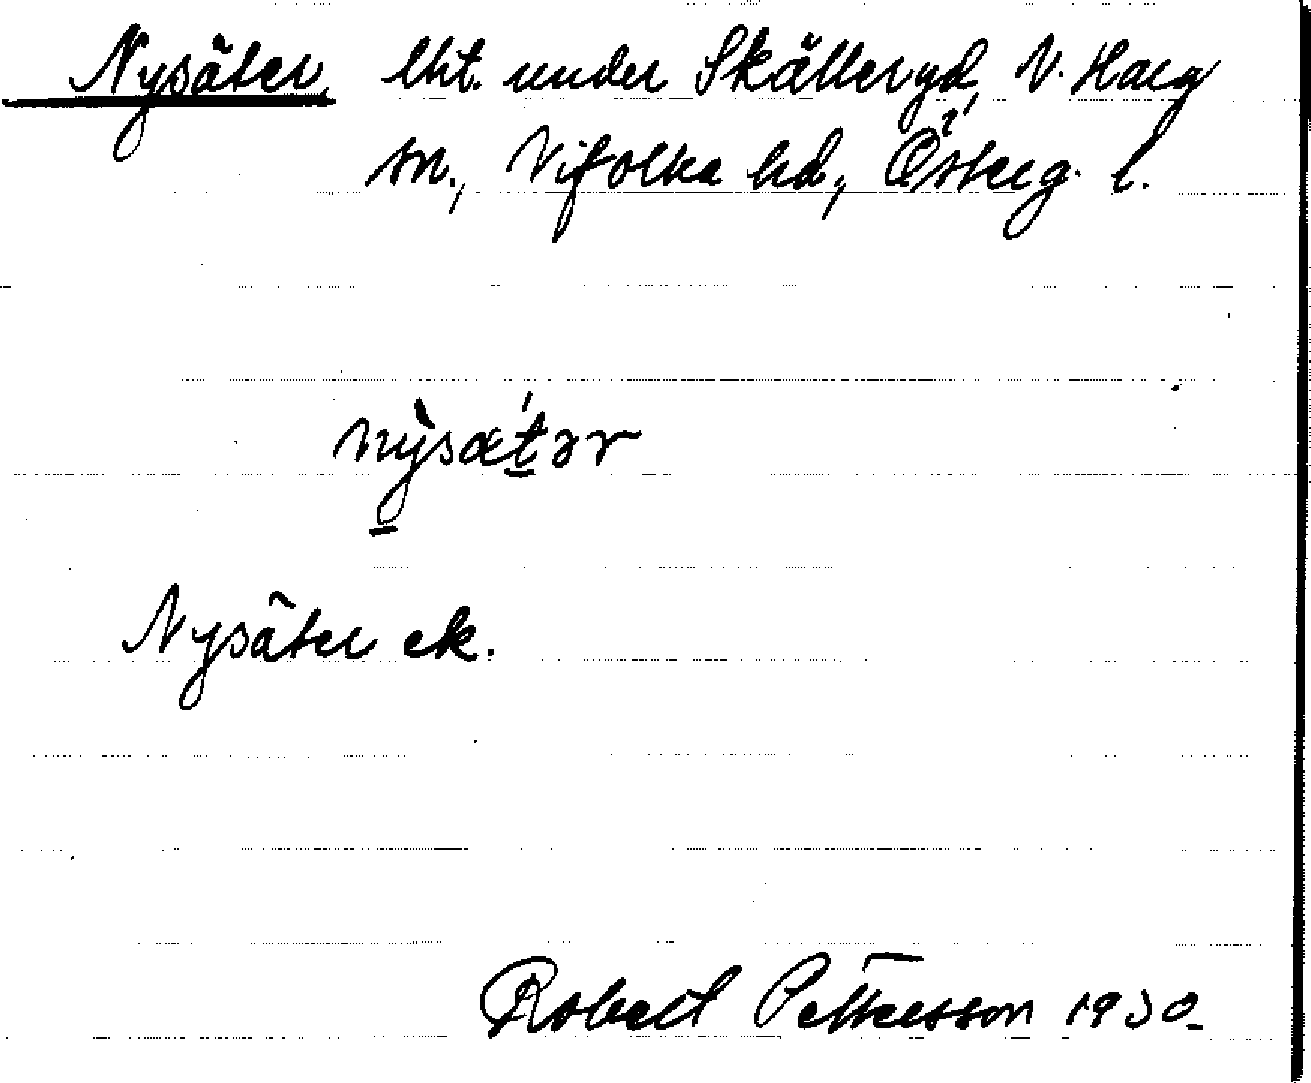 Nysäter, lht. under Skälleryd, V. Harg
sn., Vifolka hd, Österg. l.
nỳsæt́ər
Nysäter ek.
Robert Pettersson 1930